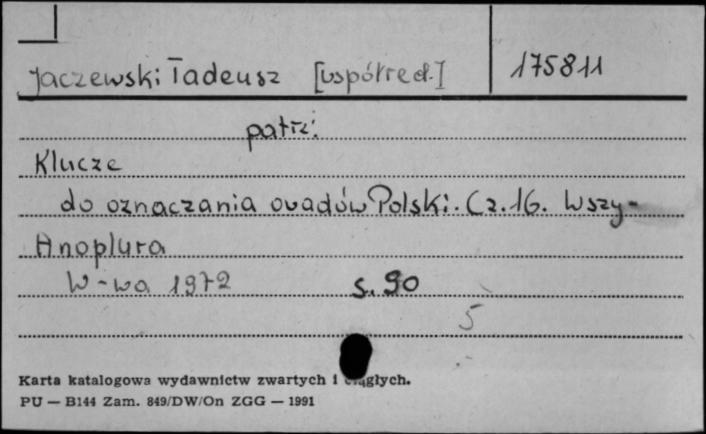 Jaczewski Tadeusz [współred.] 175811
patrz:
Klucze
do oznaczania owadów Polski. Cz. 16. Wszy-
Anoplura
W-wa 1972 s. 90
5
Karta katalogowa wydawnictw zwartych i ciągłych.
PU — B144 Zam. 849/DW/On ZGG — 1991